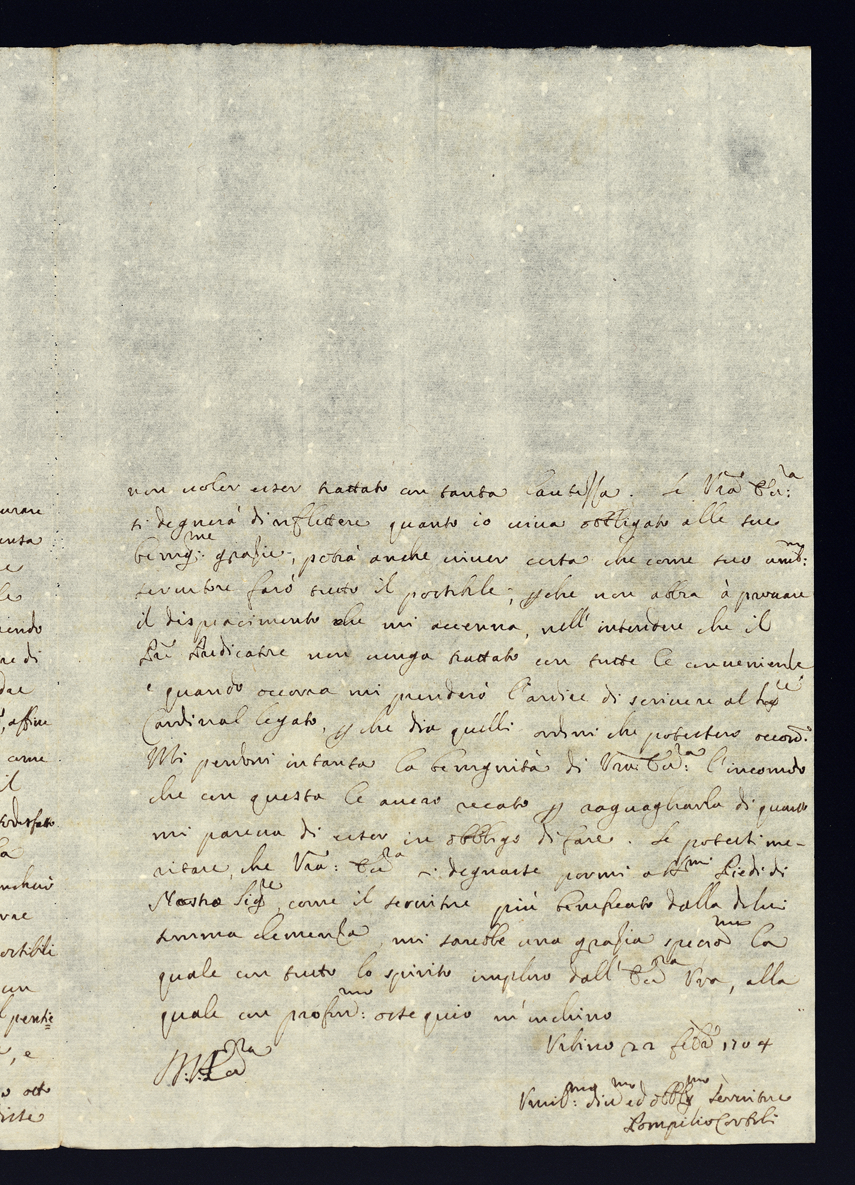 non uoler esser trattato con tanta lautezza. Se Vra Ecc:za
si degnerà di riflettere quanto io uiua obbligato alle sue
benig:me grazie, potrà anche uiuer certa che come suo umil:mo
seruitore farò tutto il possibile, perche non abbia à prouare
il dispiacimento che mi accenna, nell'intendere che il
Pre Predicatore non uenga trattato con tutte le conueniente
e quando occorra mi prenderò l'ardire di scriuere al Sigre
Cardinal legato, perche dia quelli ordini che potessero occorr:
Mi perdoni intanto la benignità di Vra: Ecc:za l'incomodo
che con questa le auerò recato per raguagliarla di quanto
mi pareua di esser in obbligo di fare. Se potessi me-
ritare, che Vra: Ecc:za si degnasse pormi a Smi Piedi di
Nostro Sigre, come il seruitore più beneficato dalla di lui
somma clemenza, mi sarebbe una grazia specio:ma la
quale con tutto lo spirito imploro dall'Ecc:za Vra, alla
quale con profon:mo ossequio m'inchino
Vrbino 22 Febro 1704
Vmil:mo diu:mo ed obblig:mo Seruitore
Pompilio Corboli
urare
ensa
e
le
iendo
re di
, affine
come
il
la
rae
ossibili
un
pensie=
, e
isse